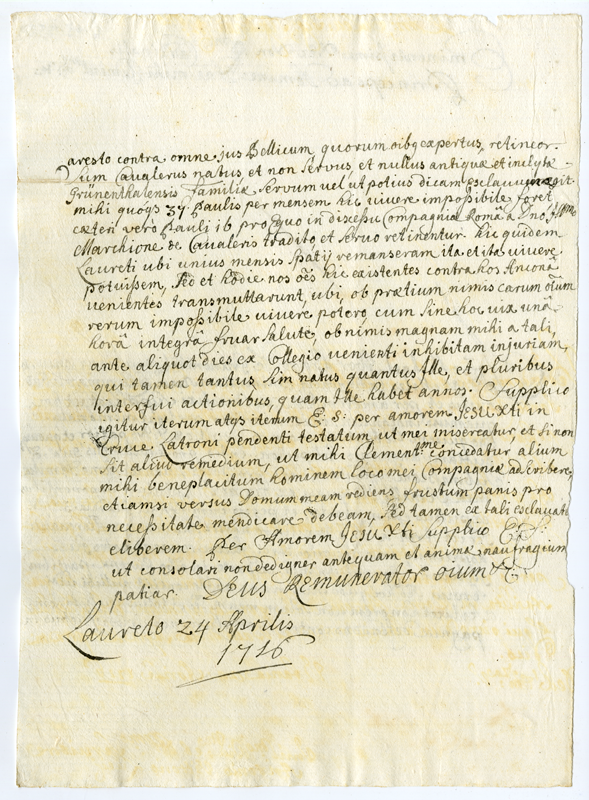 aresto contra omne jus Bellicum quorum oibq expertus, retineor.
Cum Caualerus natus et non servus, et nullus antiquæ et inclytæ
Grünenthalensis familiæ servum vel ut potius dicam esclauum
mihi quoqs 37 Paulis per mensem hic vivere impossibile foret
cæteri vero Pauli 16 pro quo in discessu Compagniæ Romā à Dno Illmo
Marchione de Caualeris tradito et servo retinentur. hic quidem
Laureti ubi unius mensis spatij remanseram ita et ita vivere
potuissem, sed et hodie nos oēs hic existentes contra hos Anconā
venientes transmuttarunt, ubi, ob prætium nimis carum oīum
rerum impossibile vivere potero, cum sine hoc vix unā
horā integrā fruar salute, ob nimis magnam mihi a tali,
ante aliquot dies ex Collegio venienti inhibitam injuriam,
qui tamen tantus sim natus quantus Ille, et pluribus
interfui actionibus, quam Ille habet annos. Supplico
igitur iterum atqs iterum E: S: per amorem JESU Xti in
Cruce Latroni pendenti testatum, ut mei misereatur, et si non
sit aliud remedium, ut mihi Clementme concedatur alium
mihi beneplacitum hominem loco mei Compagniæ adscribere,
etiamsi versus Domum meam rediens frustum panis pro
necessitate mendicare debeam, sed tamen ex tali esclavitu
eliberem. Per Amorem JESU Xti supplico E: S:
ut consolari non dedigner antequam et animæ naufragium
patiar. Deus Remunerator oium &
Laureto 24 Aprilis
1716